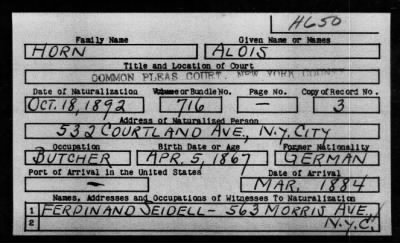 H650
Family Name Given Name or Names
HORN ALOIS
Title and Location of Court
COMMON PLEAS COURT, NEW YORK COUNTY
Date of Naturalization Volume or Bundle No. Page No. Copy of Record No.
OCT. 18, 1892 716 — 3
Address of Naturalized Person
532 COURTLAND AVE., N.Y. CITY
Occupation Birth Date or Age Former Nationality
BUTCHER APR. 5, 1867 GERMAN
Port of Arrival in the United States Date of Arrival
— MAR. 1884
Names, Addresses and Occupations of Witnesses To Naturalization
1 FERDINAND SEIDELL - 563 MORRIS AVE.,
2 N.Y.C.